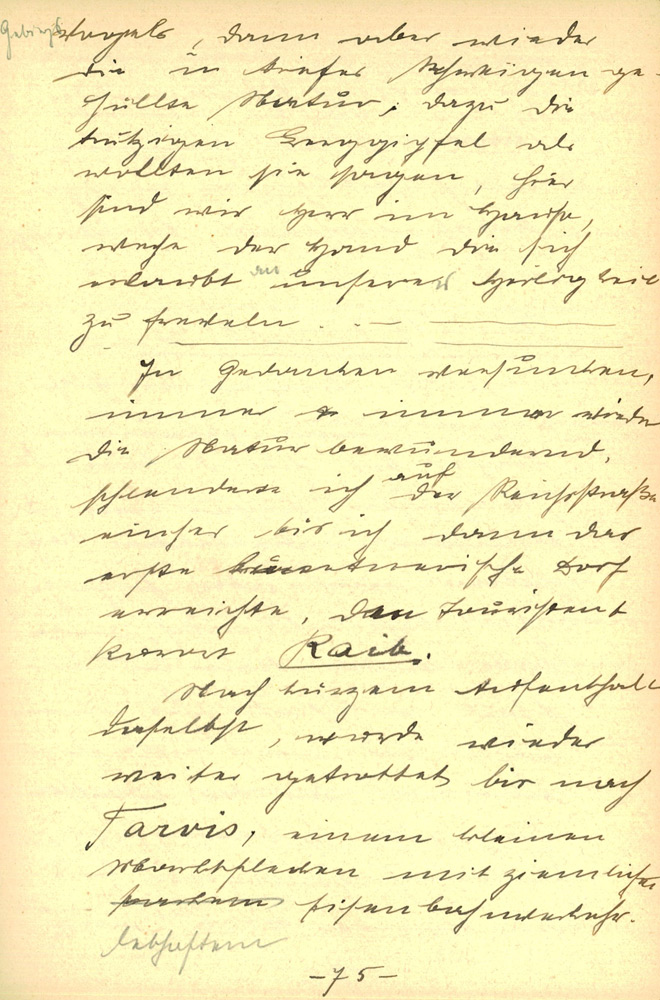 Gebirgs Vogels, dann aber wieder
die in tiefes Schweigen ge-
hüllte Natur, dazu die
trutzigen Berggipfel als
wollten sie sagen, hier
sind wir Herr im Hause,
wehe der Hand die sich
erlaubt an unserer Heiligkeit
zu freveln . . —
In Gedanken versunken,
immer u immer wieder
die Natur bewundernd,
schlenderte ich auf der Reichsstraße
einher bis ich dann das
erste kärntnerische Dorf
erreichte, den Touristen
Kurort Raib.
Nach kurzem Aufenthalt
daselbst, wurde wieder
weiter getrottet bis nach
Tarvis, einem kleinen
Marktflecken mit ziemlichen
starkem Eisenbahnverkehr.
lebhaftem
-75-